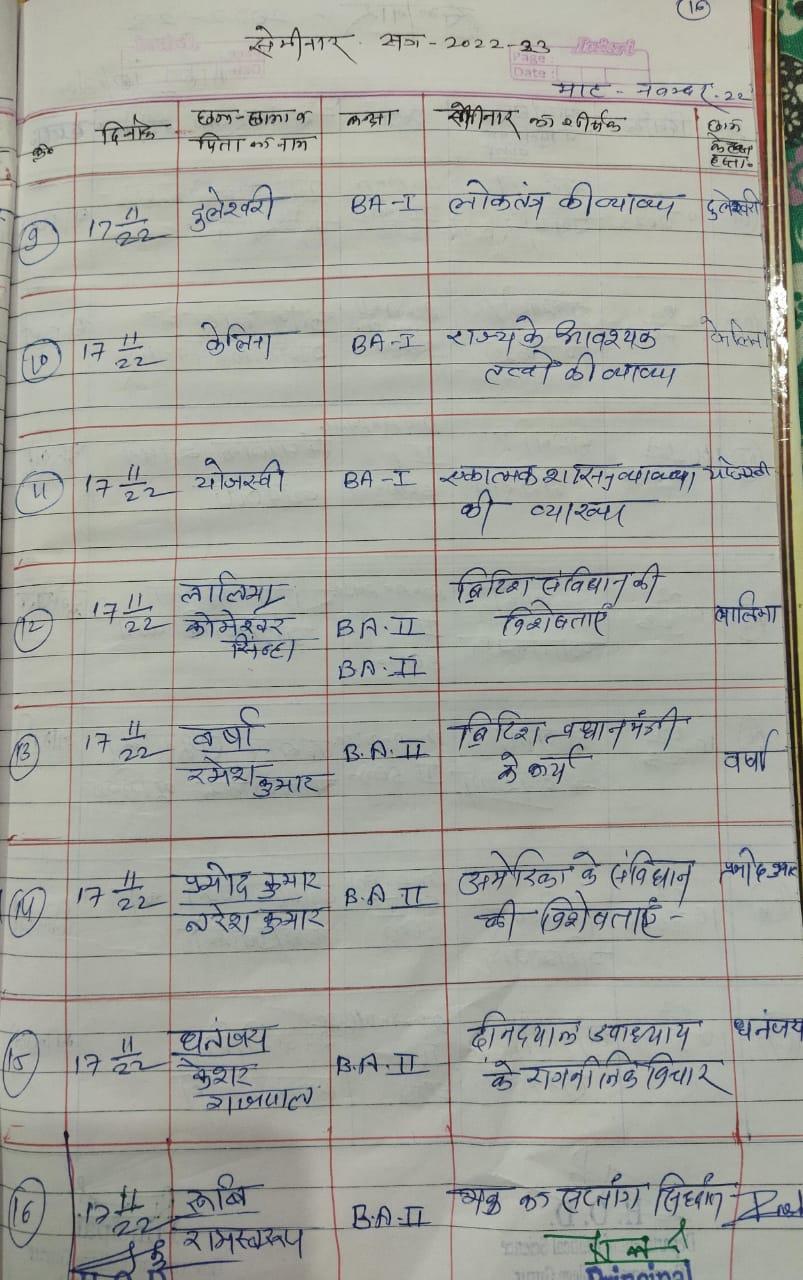 16
सेमीनार सत्र - 2022-23
Page :
Date :
माह - नवम्बर - 22
क्र० दिनांक छात्र-छात्रा व पिता का नाम कक्षा सेमीनार का शीर्षक छात्र के
9 17 11/22 दुलेश्वरी BA-I लोकतंत्र की व्याख्या दुलेश्वरी
10 17 11/22 केलिना BA-I राज्य के आवश्यक केलिना
तत्वो की व्याख्या
11 17 11/22 योजस्वी BA-I एकात्मक शासन योजस्वी
की व्याख्या
12 17 11/22 लालिमा ब्रिटिश संविधान की
कोमेश्वर BA-II विशेषताएँ लालिमा
सिन्हा BA-II
13 17 11/22 वर्षा B.A-II ब्रिटिश प्रधानमंत्री
रमेश कुमार के कार्य वर्षा
14 17 11/22 प्रमोद कुमार B.A II अमेरिका के संविधान
नरेश कुमार की विशेषताएँ -
15 17 11/22 धनंजय दीनदयाल उपाध्याय धनंजय
केशर B.A-II के राजनीतिक विचार
राजपाल
16 17 11/22 रूबि B.A-II का सप्तांग सिद्धांत
रामस्वरूप
Principal